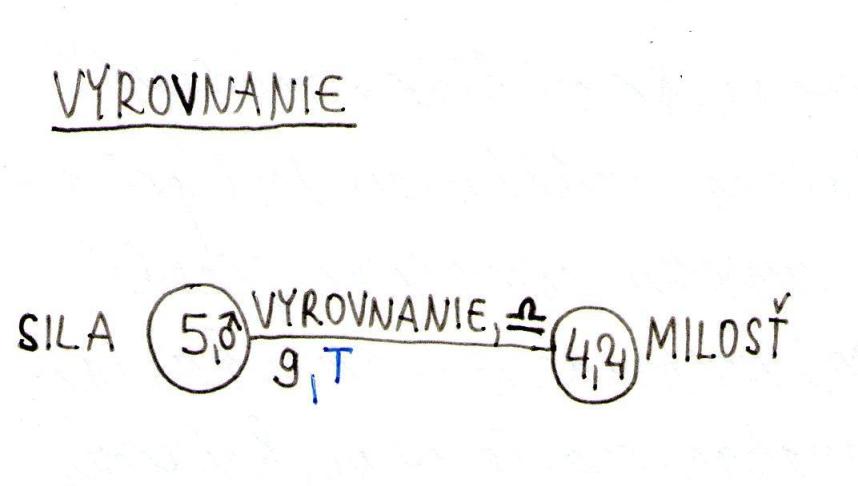 VYROVNANIE
SILA 5,♂ VYROVNANIE, ♎ 4,♃ MILOSŤ
9, T